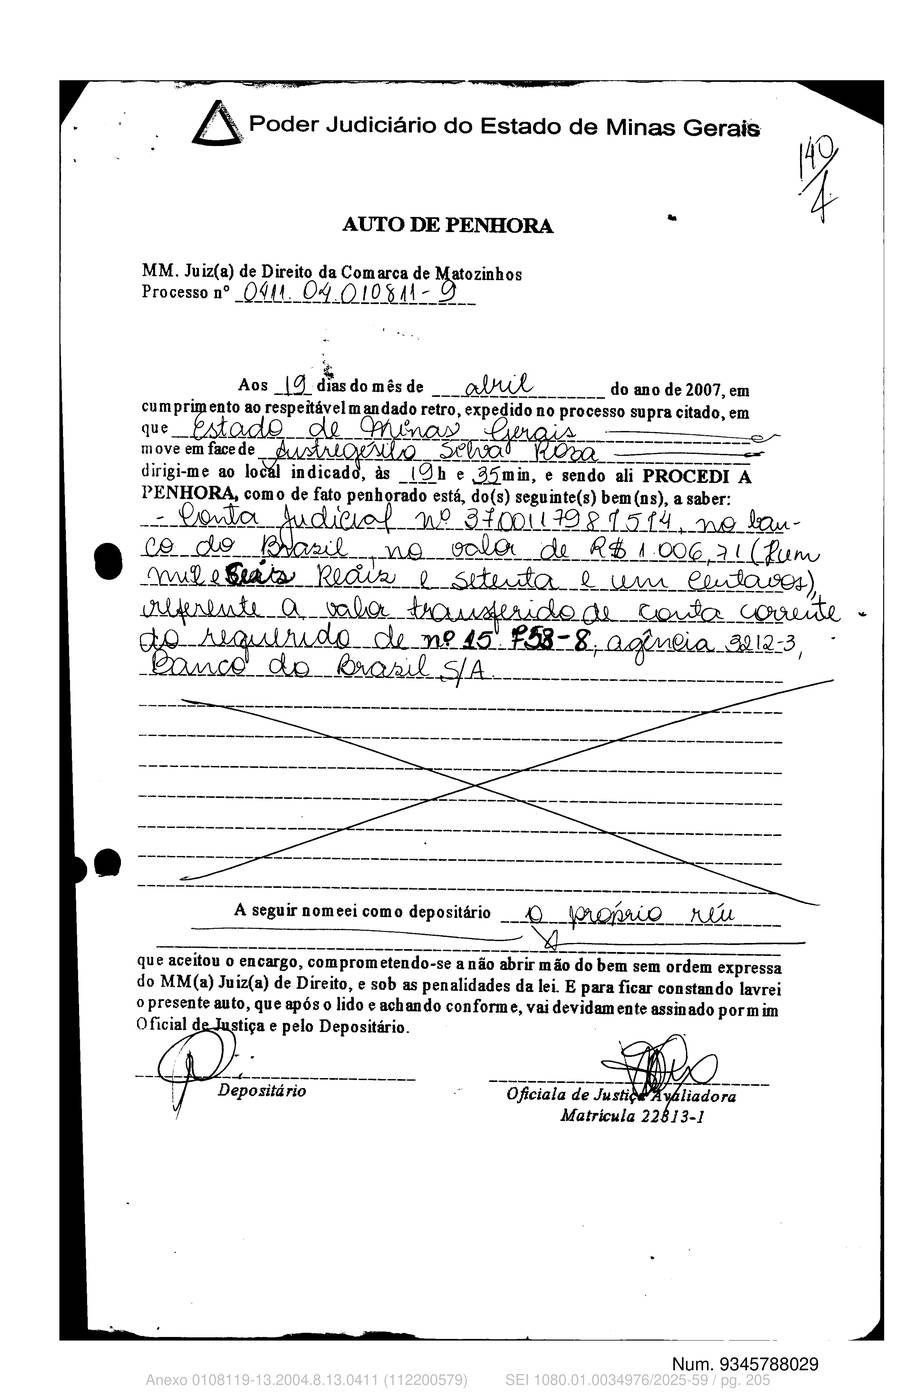 Poder Judiciário do Estado de Minas Gerais
140
AUTO DE PENHORA
MM. Juiz(a) de Direito da Comarca de Matozinhos
Processo nº 0411.04.010811-9
Aos 19 dias do mês de abril do ano de 2007, em
cumprimento ao respeitável mandado retro, expedido no processo supra citado, em
que Estado de Minas Gerais
move em face de Austregésilo Selva Rosa
dirigi-me ao local indicado, às 19h e 35min, e sendo ali PROCEDI A
PENHORA, como de fato penhorado está, do(s) seguinte(s) bem(ns), a saber:
- Conta Judicial nº no ban-
co do Brasil, no valor de R$ 1.006,71 (hum
mil e Seais Reais e setenta e um centavos),
referente a valor transferido de conta corrente
do requerido de nº 15.758-8, agência 3212-3,
Banco do Brasil S/A.
A seguir nomeei como depositário o próprio réu
que aceitou o encargo, comprometendo-se a não abrir mão do bem sem ordem expressa
do MM(a) Juiz(a) de Direito, e sob as penalidades da lei. E para ficar constando lavrei
o presente auto, que após o lido e achando conforme, vai devidamente assinado por mim
Oficial de Justiça e pelo Depositário.
Depositário
Oficiala de Justiça Avaliadora
Matrícula 22813-1
Num. 9345788029
Anexo 0108119-13.2004.8.13.0411 (112200579) SEI 1080.01.0034976/2025-59 / pg. 205